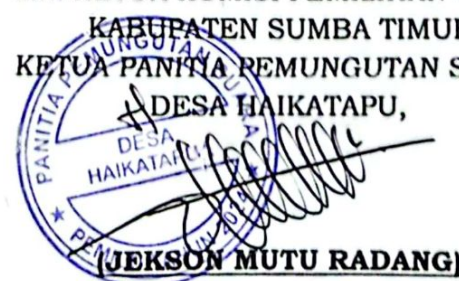 KABUPATEN SUMBA TIMUR
KETUA PANITIA PEMUNGUTAN S
DESA HAIKATAPU,
PANITIA PEMUNGUTAN SUARA
DESA
HAIKATAPU
(JEKSON MUTU RADANG)